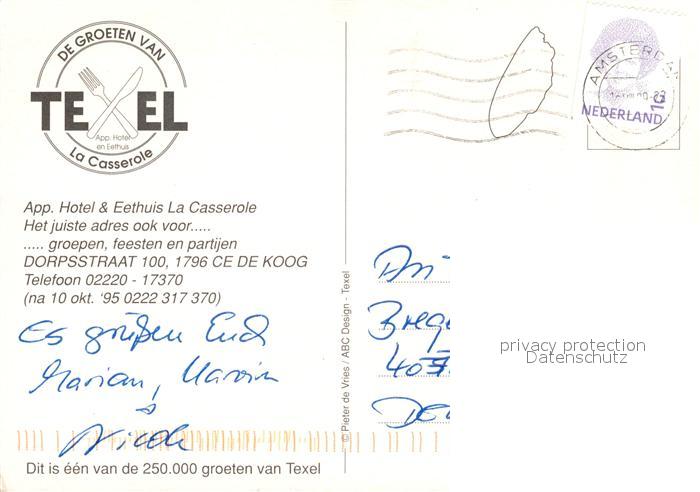 DE GROETEN VAN
TEXEL
App. Hotel
en Eethuis
La Casserole
App. Hotel & Eethuis La Casserole
Het juiste adres ook voor.....
..... groepen, feesten en partijen
DORPSSTRAAT 100, 1796 CE DE KOOG
Telefoon 02220 - 17370
(na 10 okt. '95 0222 317 370)
Es grüßen Euch
Marian, Marvin
Nicole
Dit is één van de 250.000 groeten van Texel
© Pieter de Vries / ABC Design - Texel
AMSTERDAM
NEDERLAND
privacy protection
Datenschutz